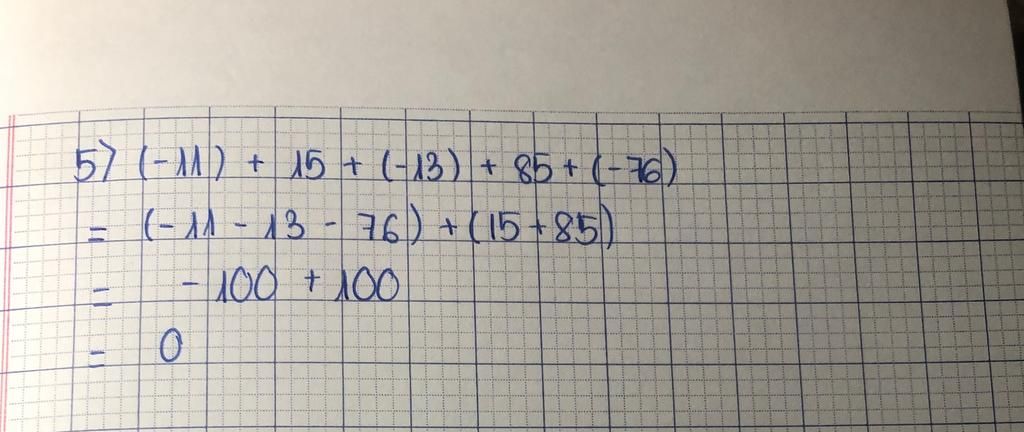 5) (-11) + 15 + (-13) + 85 + (-76)
= (-11 - 13 - 76) + (15 + 85)
= - 100 + 100
= 0